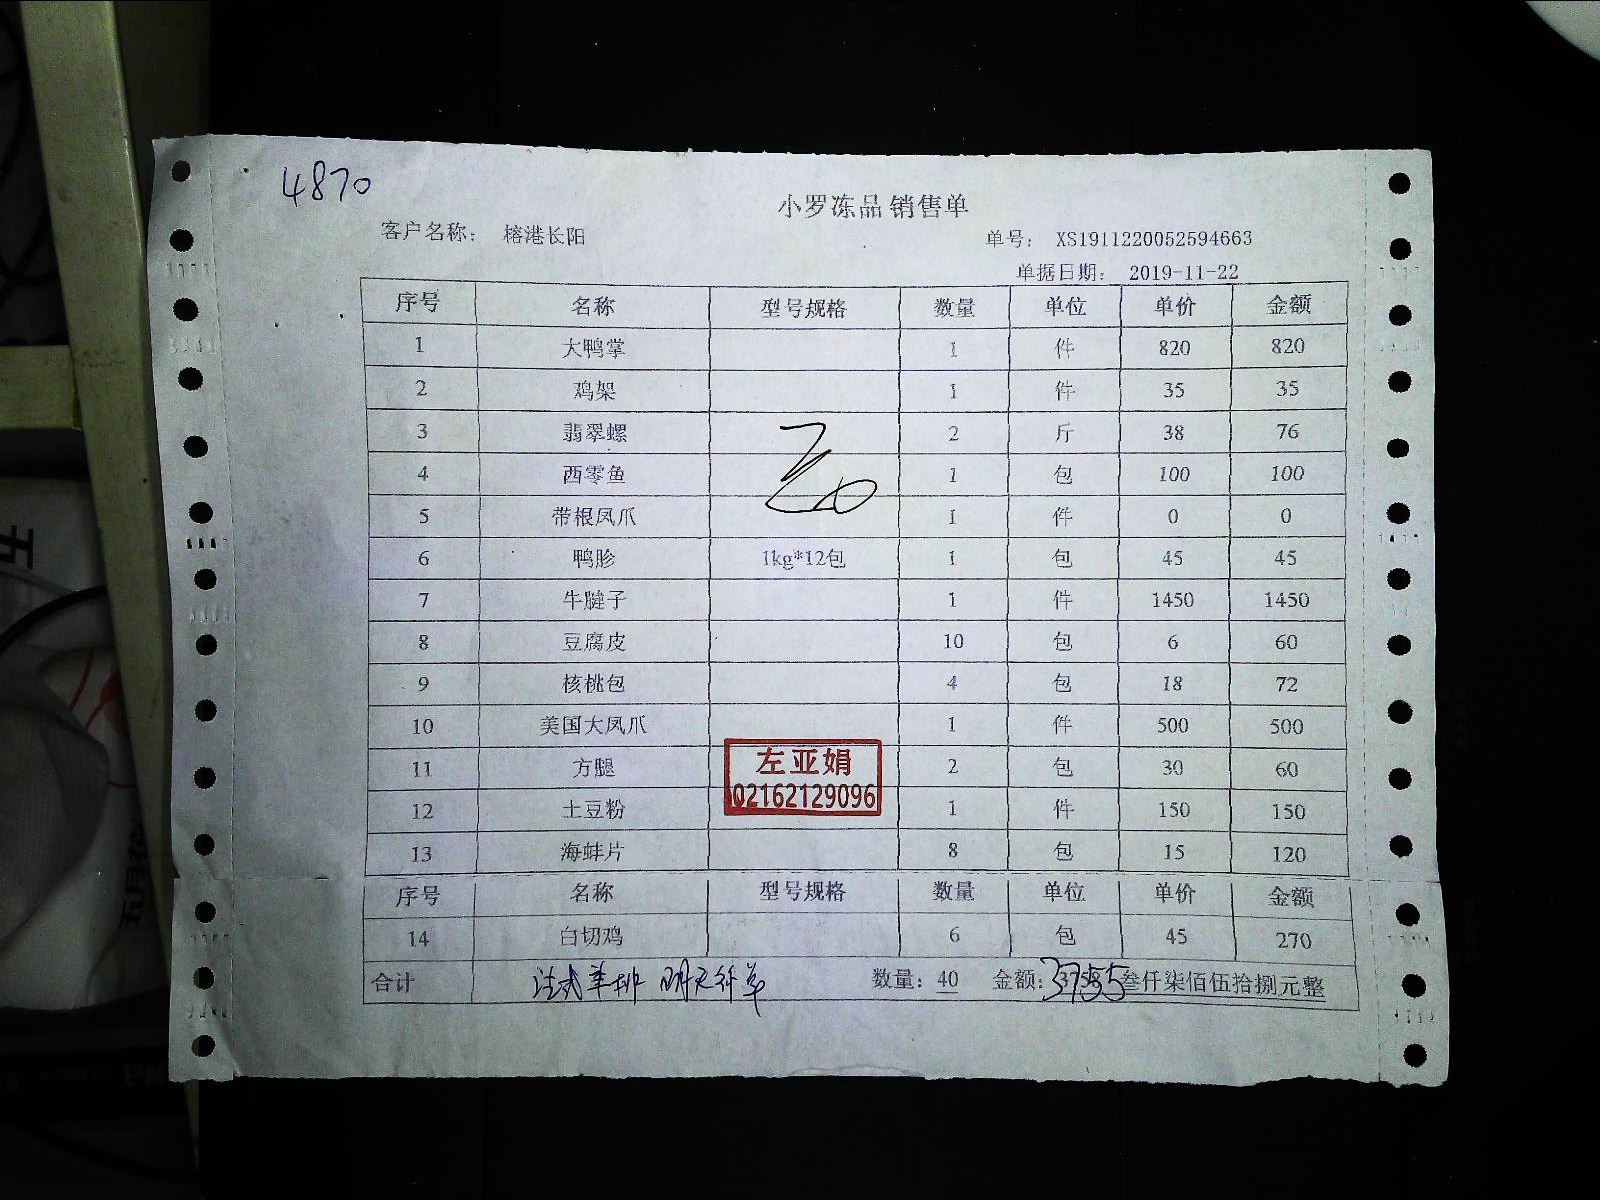 4870
小罗冻品 销售单
客户名称： 榕港长阳 单号： XS1911220052594663
单据日期： 2019-11-22
序号 名称 型号规格 数量 单位 单价 金额
1 大鸭掌 1 件 820 820
2 鸡架 1 件 35 35
3 翡翠螺 2 斤 38 76
4 西零鱼 1 包 100 100
5 带根凤爪 1 件 0 0
6 鸭胗 1kg*12包 1 包 45 45
7 牛腱子 1 件 1450 1450
8 豆腐皮 10 包 6 60
9 核桃包 4 包 18 72
10 美国大凤爪 1 件 500 500
11 方腿 2 包 30 60
左亚娟
02162129096
12 土豆粉 1 件 150 150
13 海蚌片 8 包 15 120
序号 名称 型号规格 数量 单位 单价 金额
14 白切鸡 6 包 45 270
合计 法式羊排 明天补单 数量：40 金额：3755 叁仟柒佰伍拾捌元整